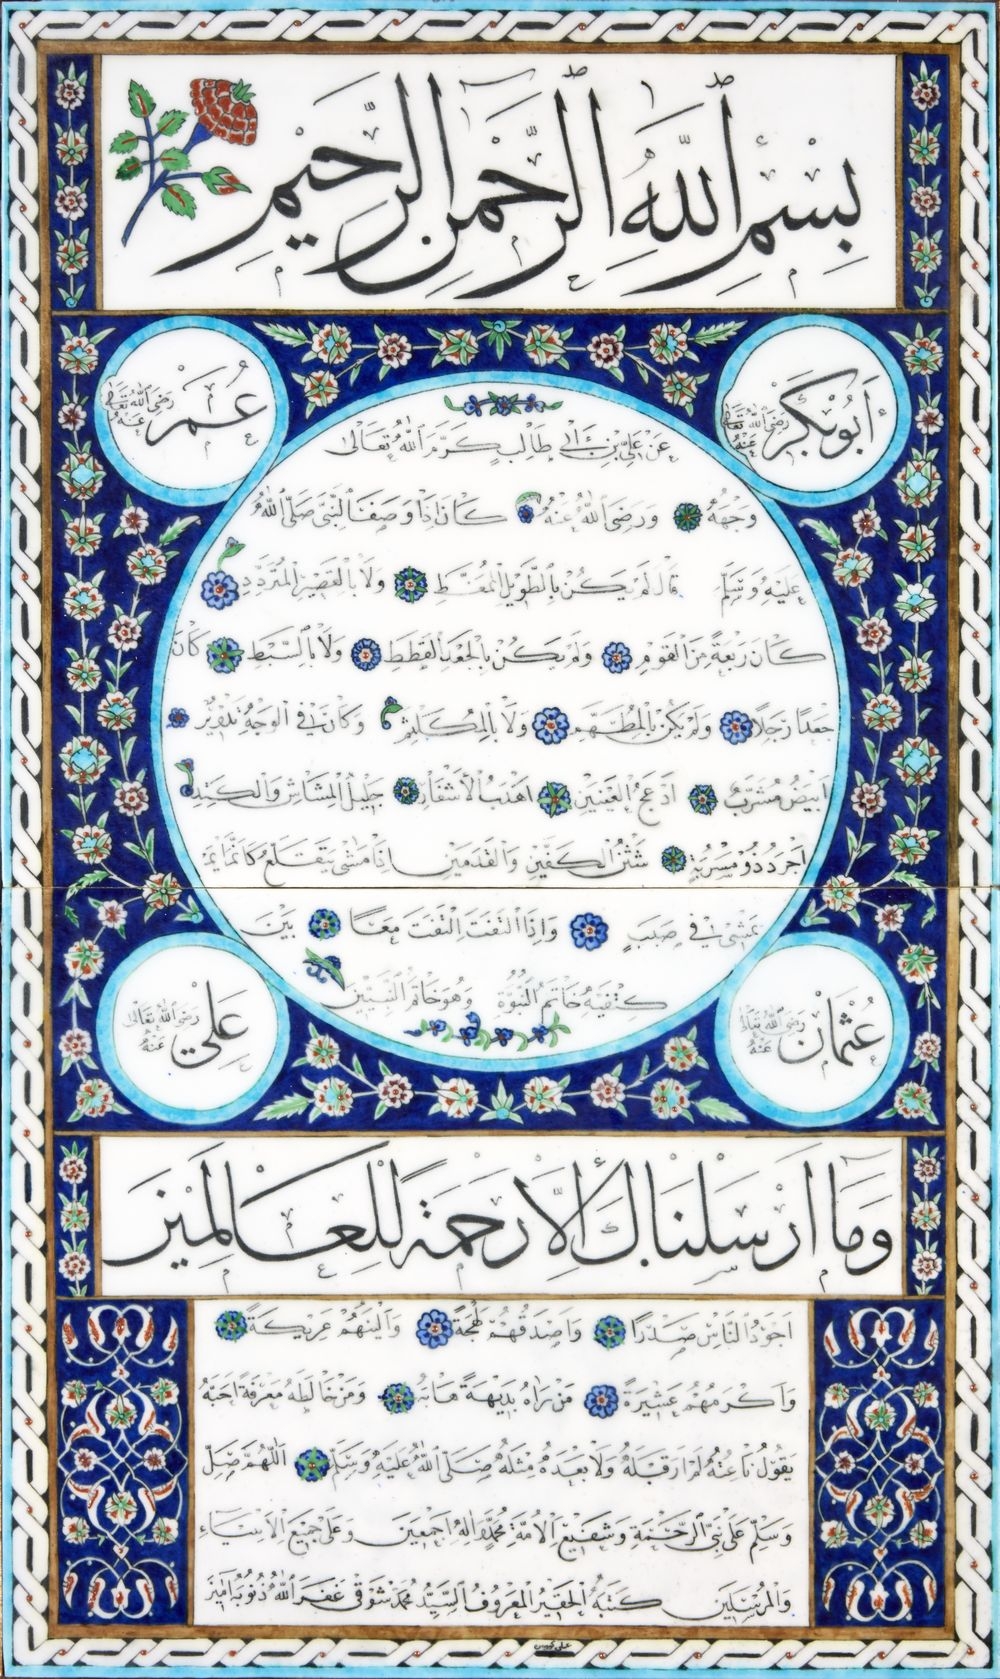 بِسْمِ ٱللَّهِ ٱلرَّحْمَٰنِ ٱلرَّحِيمِ
أَبُوبَكْرٍ رَضِيَ ٱللَّهُ تَعَالَى عَنْهُ
عُمَرْ رَضِيَ ٱللَّهُ تَعَالَى عَنْهُ
عَنْ عَلِيِّ بْنِ أَبِي طَالِبٍ كَرَّمَ ٱللَّهُ تَعَالَى
وَجْهَهُ وَرَضِيَ ٱللَّهُ عَنْهُ كَانَ اِذَا وَصَفَ النَّبِيَّ صَلَّى ٱللَّهُ
عَلَيْهِ وَسَلَّمَ قَالَ لَمْ يَكُنْ بِالطَّوِيلِ الْمُمَّغِطِ وَلَا بِالْقَصِيرِ الْمُتَرَدِّدِ
كَانَ رَبْعَةً مِنَ الْقَوْمِ وَلَمْ يَكُنْ بِالْجَعْدِ الْقَطَطِ وَلَا بِالسَّبْطِ كَانَ
جَعْدًا رَجِلًا وَلَمْ يَكُنْ بِالْمُطَهَّمِ وَلَا بِالْمُكَلْثَمِ وَكَانَ فِي الْوَجْهِ تَدْوِيرٌ
اَبْيَضُ مُشْرَبٌ اَدْعَجُ الْعَيْنَيْنِ اَهْدَبُ الْاَشْفَارِ جَلِيلُ الْمُشَاشِ وَالْكَتَدِ
اَجْرَدُ ذُو مَسْرُبَةٍ شَثْنُ الْكَفَّيْنِ وَالْقَدَمَيْنِ اِذَا مَشَى يَتَقَلَّعُ كَاَنَّمَا
يَمْشِي فِي صَبَبٍ وَاِذَا الْتَفَتَ الْتَفَتَ مَعًا بَيْنَ
كَتِفَيْهِ خَاتَمُ النُّبُوَّةِ وَهُوَ خَاتَمُ النَّبِيِّينَ
عُثْمَانْ رَضِيَ ٱللَّهُ تَعَالَى عَنْهُ
عَلِيْ رَضِيَ ٱللَّهُ تَعَالَى عَنْهُ
وَمَا اَرْسَلْنَاكَ اِلَّا رَحْمَةً لِلْعَالَمِينَ
اَجْوَدُ النَّاسِ صَدْرًا وَاَصْدَقُهُمْ لَهْجَةً وَاَلْيَنُهُمْ عَرِيكَةً
وَاَكْرَمُهُمْ عَشِيرَةً مَنْ رَاٰهُ بَدِيهَةً هَابَهُ وَمَنْ خَالَطَهُ مَعْرِفَةً اَحَبَّهُ
يَقُولُ نَاعِتُهُ لَمْ اَرَ قَبْلَهُ وَلَا بَعْدَهُ مِثْلَهُ صَلَّى ٱللَّهُ عَلَيْهِ وَسَلَّمَ اَللَّهُمَّ صَلِّ
وَسَلِّمْ عَلَى نَبِيِّ الرَّحْمَةِ وَشَفِيعِ الْاُمَّةِ مُحَمَّدٍ وَاٰلِهِ اَجْمَعِينَ وَعَلَى جَمِيعِ الْاَنْبِيَاءِ
وَالْمُرْسَلِينَ كَتَبَهُ الْحَقِيرُ الْمَعْرُوفُ السَّيِّدُ مُحَمَّد شَوْقِي غَفَرَ ٱللَّهُ ذُنُوبَهُ اٰمِينَ